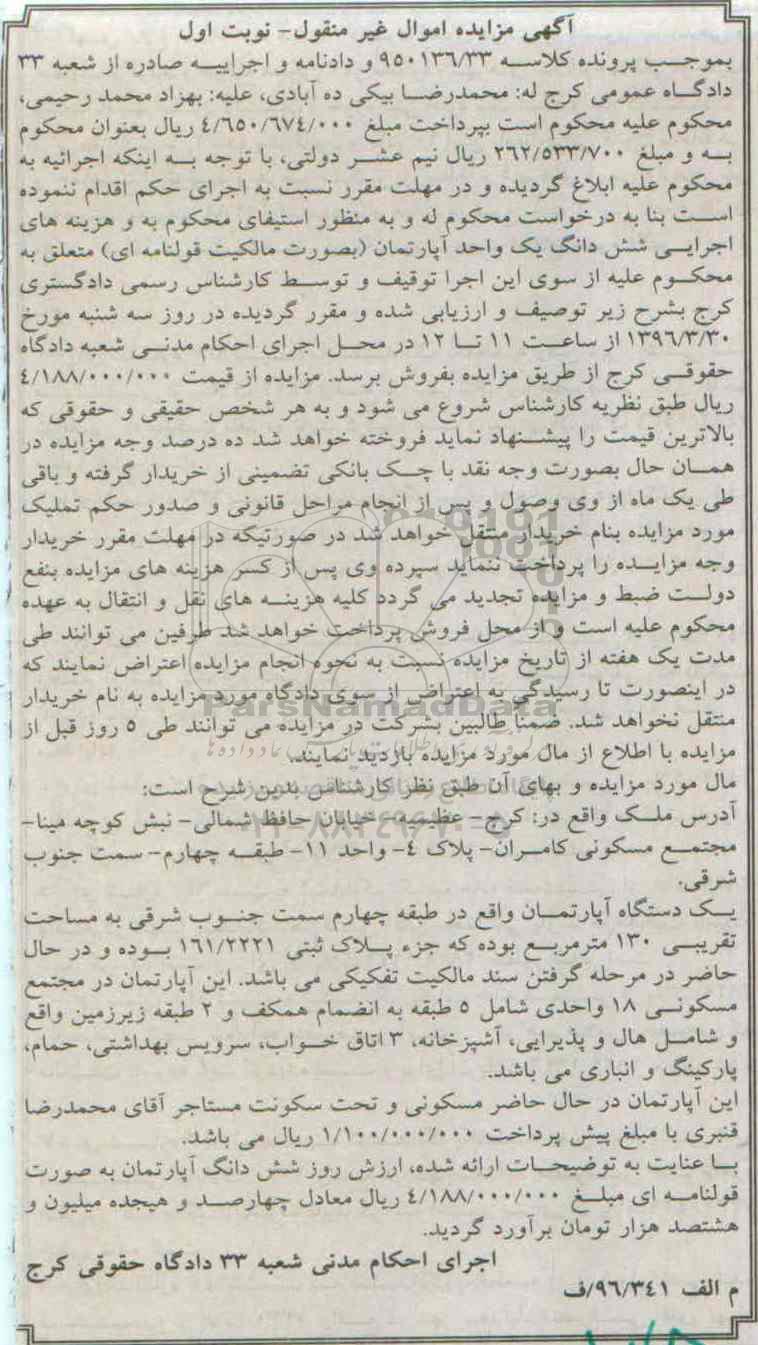 آگهی مزایده اموال غیر منقول- نوبت اول
بموجب پرونده کلاسه ۹۵۰۱۳۶/۳۳ و دادنامه و اجراییه صادره از شعبه ۳۳
دادگاه عمومی کرج له: محمدرضا بیکی ده آبادی، علیه: بهزاد محمد رحیمی،
محکوم علیه محکوم است بپرداخت مبلغ ۴/۶۵۰/۶۷۴/۰۰۰ ریال بعنوان محکوم
به و مبلغ ۲۶۲/۵۳۳/۷۰۰ ریال نیم عشر دولتی، با توجه به اینکه اجرائیه به
محکوم علیه ابلاغ گردیده و در مهلت مقرر نسبت به اجرای حکم اقدام ننموده
است بنا به درخواست محکوم له و به منظور استیفای محکوم به و هزینه های
اجرایی شش دانگ یک واحد آپارتمان (بصورت مالکیت قولنامه ای) متعلق به
محکوم علیه از سوی این اجرا توقیف و توسط کارشناس رسمی دادگستری
کرج بشرح زیر توصیف و ارزیابی شده و مقرر گردیده در روز سه شنبه مورخ
۱۳۹۶/۳/۳۰ از ساعت ۱۱ تا ۱۲ در محل اجرای احکام مدنی شعبه دادگاه
حقوقی کرج از طریق مزایده بفروش برسد. مزایده از قیمت ۴/۱۸۸/۰۰۰/۰۰۰
ریال طبق نظریه کارشناس شروع می شود و به هر شخص حقیقی و حقوقی که
بالاترین قیمت را پیشنهاد نماید فروخته خواهد شد ده درصد وجه مزایده در
همان حال بصورت وجه نقد با چک بانکی تضمینی از خریدار گرفته و باقی
طی یک ماه از وی وصول و پس از انجام مراحل قانونی و صدور حکم تملیک
مورد مزایده بنام خریدار منتقل خواهد شد در صورتیکه در مهلت مقرر خریدار
وجه مزایده را پرداخت ننماید سپرده وی پس از کسر هزینه های مزایده بنفع
دولت ضبط و مزایده تجدید می گردد کلیه هزینه های نقل و انتقال به عهده
محکوم علیه است و از محل فروش پرداخت خواهد شد طرفین می توانند طی
مدت یک هفته از تاریخ مزایده نسبت به نحوه انجام مزایده اعتراض نمایند که
در اینصورت تا رسیدگی به اعتراض از سوی دادگاه مورد مزایده به نام خریدار
ParsNamadData
منتقل نخواهد شد. ضمناً طالبین بشرکت در مزایده می توانند طی ۵ روز قبل از
مزایده با اطلاع از مال مورد مزایده بازدید نمایند.
مال مورد مزایده و بهای آن طبق نظر کارشناس بدین شرح است:
آدرس ملک واقع در: کرج- عظیمیه- خیابان حافظ شمالی- نبش کوچه مینا-
مجتمع مسکونی کامران- پلاک ۴- واحد ۱۱- طبقه چهارم- سمت جنوب
شرقی.
یک دستگاه آپارتمان واقع در طبقه چهارم سمت جنوب شرقی به مساحت
تقریبی ۱۳۰ مترمربع بوده که جزء پلاک ثبتی ۱۶۱/۲۲۲۱ بوده و در حال
حاضر در مرحله گرفتن سند مالکیت تفکیکی می باشد. این آپارتمان در مجتمع
مسکونی ۱۸ واحدی شامل ۵ طبقه به انضمام همکف و ۲ طبقه زیرزمین واقع
و شامل هال و پذیرایی، آشپزخانه، ۳ اتاق خواب، سرویس بهداشتی، حمام،
پارکینگ و انباری می باشد.
این آپارتمان در حال حاضر مسکونی و تحت سکونت مستاجر آقای محمدرضا
قنبری با مبلغ پیش پرداخت ۱/۱۰۰/۰۰۰/۰۰۰ ریال می باشد.
با عنایت به توضیحات ارائه شده، ارزش روز شش دانگ آپارتمان به صورت
قولنامه ای مبلغ ۴/۱۸۸/۰۰۰/۰۰۰ ریال معادل چهارصد و هیجده میلیون و
هشتصد هزار تومان برآورد گردید.
اجرای احکام مدنی شعبه ۳۳ دادگاه حقوقی کرج
م الف ۹۶/۳۴۱/ف